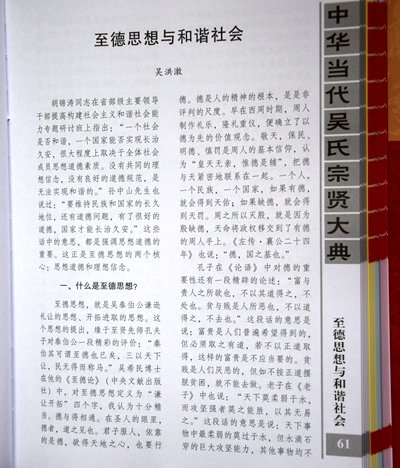 至德思想与和谐社会
吴洪激
胡锦涛同志在省部级主要领导
干部提高构建社会主义和谐社会能
力专题研讨班上指出：“一个社会
是否和谐，一个国家能否实现长治
久安，很大程度上取决于全体社会
成员思想道德素质。没有共同的理
想信念，没有良好的道德规范，是
无法实现和谐的。”孙中山先生也
说过：“要维持民族和国家的长久
地位，还有道德问题，有了很好的
道德，国家才能长治久安。”这些
话中的意思，都是强调思想道德的
重要。这正是至德思想的两个核
心：思想道德和理想信念。
一、什么是至德思想？
至德思想，就是吴泰伯公谦逊
礼让的思想、开拓进取的思想。这
个思想的提出，缘于至圣先师孔夫
子对泰伯公一段精彩的评价：“泰
伯其可谓至德也已矣，三以天下
让，民无得而称焉。”吴希民博士
在他的《至德论》（中央文献出版
社）中，对至德思想定义为“谦
让开拓”四个字，我认为十分精
当。德与得相通。在圣人的眼里，
德者，道之见也。君子服人，依靠
的是德，欲得天地之心，也要行
德。德是人的精神的根本，是是非
评判的尺度。早在西周时期，周人
制作礼乐，隆礼重仪，便确立了以
德为先的价值观念。敬天，保民，
明德、慎罚是周人的基本信仰，认
为“皇天无亲，惟德是辅”，把德
与天紧密地联系在一起。一个人，
一个民族，一个国家，如果有德，
就会得到天佑；如果缺德，就会得
到天罚。周之所以灭殷，就是因为
殷缺德，天命将政权移交到了有德
的周人手上。《左传·襄公二十四
年》也说：“德，国之基也。”
孔子在《论语》中对德的重
要性还有一段精辟的论述：“富与
贵人之所欲也，不以其道得之，不
处也。贫与贱是人所恶也，不以道
得之，不去也。”这段话的意思是
说：富贵是人们普遍希望得到的，
但必须取之有道，若不以正道取
得，这样的富贵是不应当要的。贫
贱是人们厌恶的，但如不按正道摆
脱贫困，就不能去做。老子在《老
子》中也说：“天下莫柔弱于水，
而攻坚强者莫之能胜，以其无易
之。”这段话的意思是说：天下事
物中最柔弱的莫过于水，但水滴石
穿的巨大攻坚能力，其他事物均不
中华当代吴氏宗贤大典
至德思想与和谐社会
61